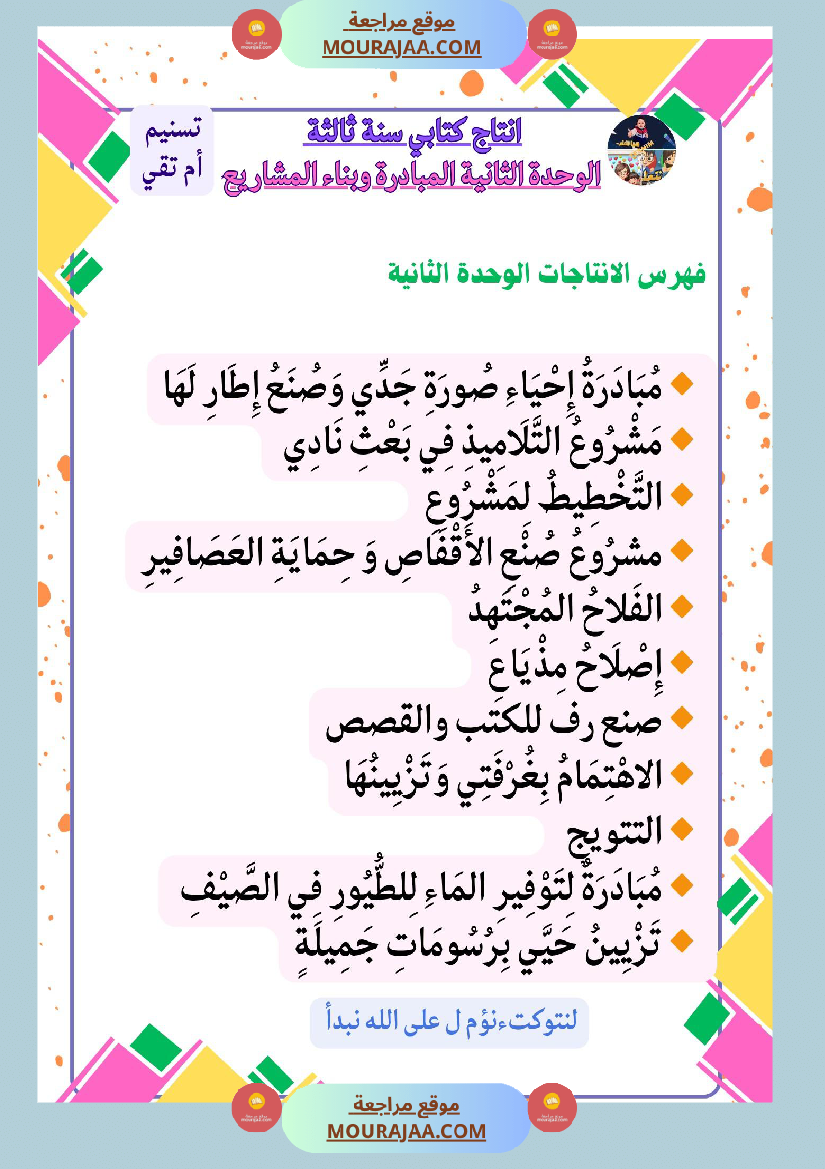 موقع مراجعة
MOURAJAA.COM
انتاج كتابي سنة ثالثة
الوحدة الثانية المبادرة وبناء المشاريع
تسنيم
أم تقي
فهرس الانتاجات الوحدة الثانية
مُبَادَرَةُ إِحْيَاءِ صُورَةِ جَدِّي وَصُنَعُ إِطَارِ لَهَا
مَشْرُوعُ التَّلَامِيذِ فِي بَعْثِ نَادِي
التَّخْطِيطُ لمَشْرُوعِ
مشرُوعُ صُنْعِ الأَقْفَاصِ وَ حِمَايَةِ العَصَافِيرِ
الفَلاحُ المُجْتَهِدُ
إِصْلَاحُ مِذْيَاعِ
صنع رف للكتب والقصص
الاهْتِمَامُ بِغُرْفَتِي وَتَزْيِينُهَا
التتويج
مُبَادَرَةٌ لِتَوْفِيرِ المَاءِ لِلطُّيُورِ فِي الصَّيْفِ
تَزْيِينُ حَيَّي بِرُسُومَاتِ جَمِيلَةٍ
لنتوكتءنؤم ل على الله نبدأ
موقع مراجعة
MOURAJAA.COM